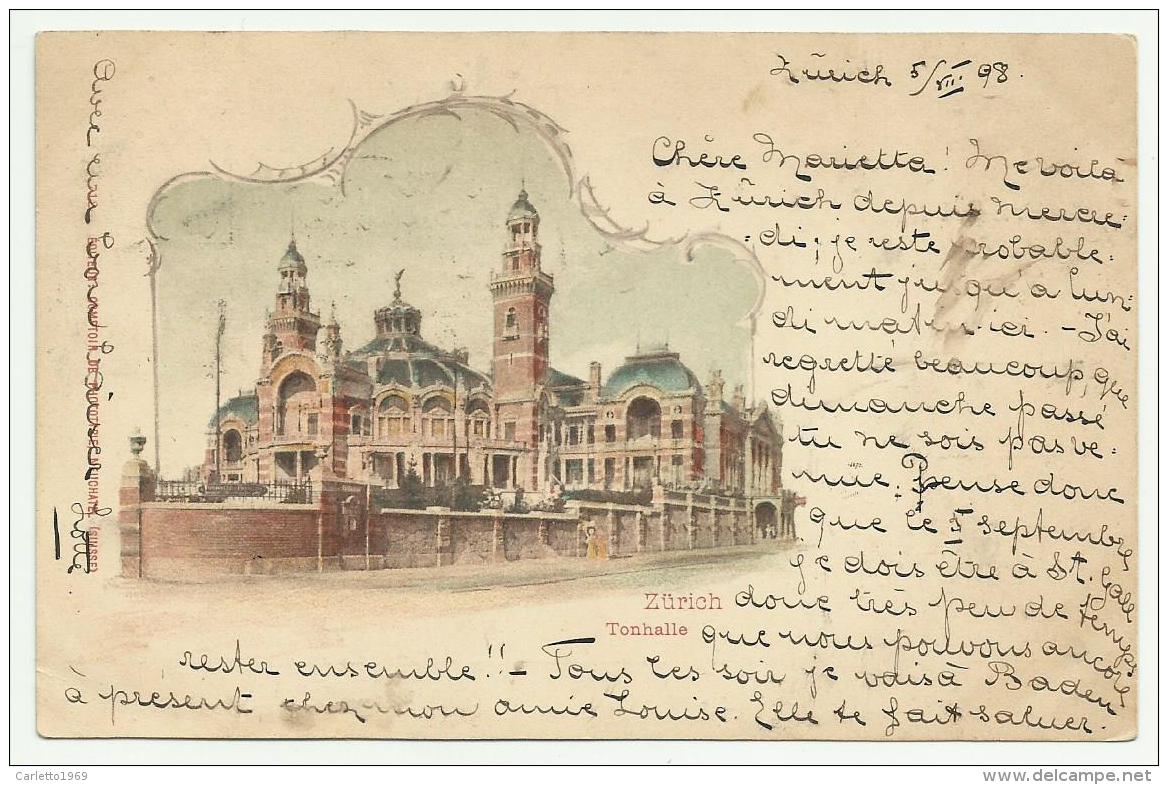 Zürich 5/VIII 98.
Chère Marietta! Me voilà
à Zürich depuis mercre-
di; je reste probable-
ment jusqu'à lun-
di matin ici. – J'ai
regretté beaucoup, que
dimanche passé
tu ne sois pas ve-
nue. Pense donc
que le 5 septembre
je dois être à St. Gall
donc très peu de temps
que nous pouvons encore
rester ensemble!! – Tous les soir je vais à Baden
à présent chez mon amie Louise. Elle te fait saluer.
Avec un
Zürich
Tonhalle
Carletto1969
www.delcampe.net